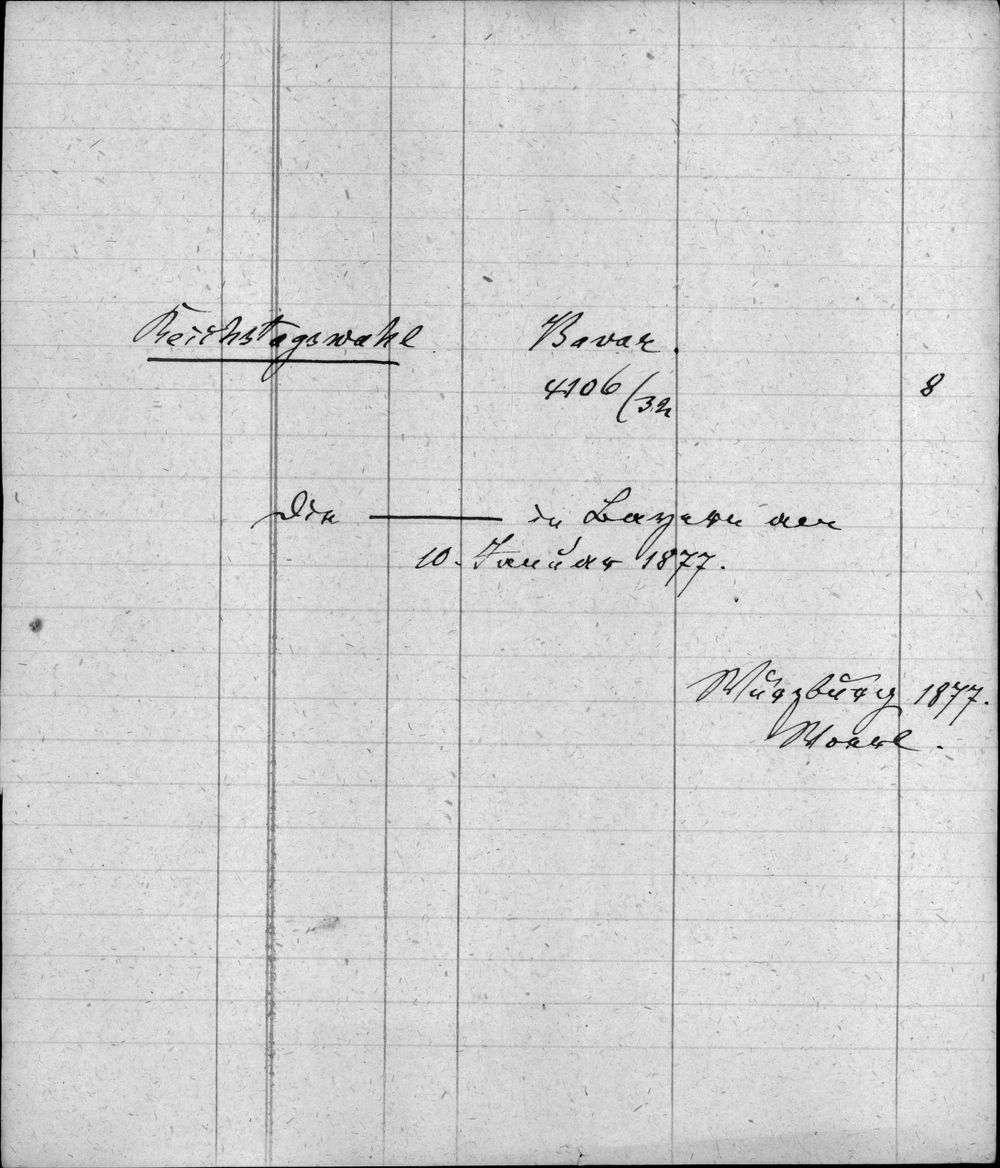 Reichstagswahl Bavar.
4106/32 8
Die —— in Bayern am
10. Januar 1877.
Würzburg 1877.
Woerl.